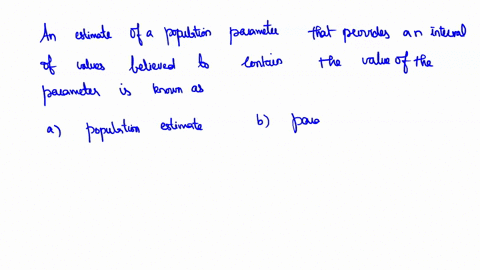 An estimate of a population parameter that provides an interval
of values believed to contain the value of the
parameter is known as
a) population estimate b) para